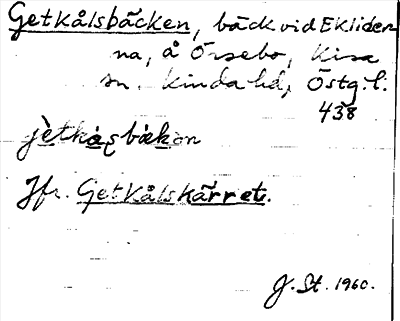 Getkålsbäcken, bäck vid Ekliden
na, å Örsebo, Kisa
sn. Kinda hd, Östg.l.
438
jètkåsbäkən
Jfr. Getkålskärret.
J. St. 1960.